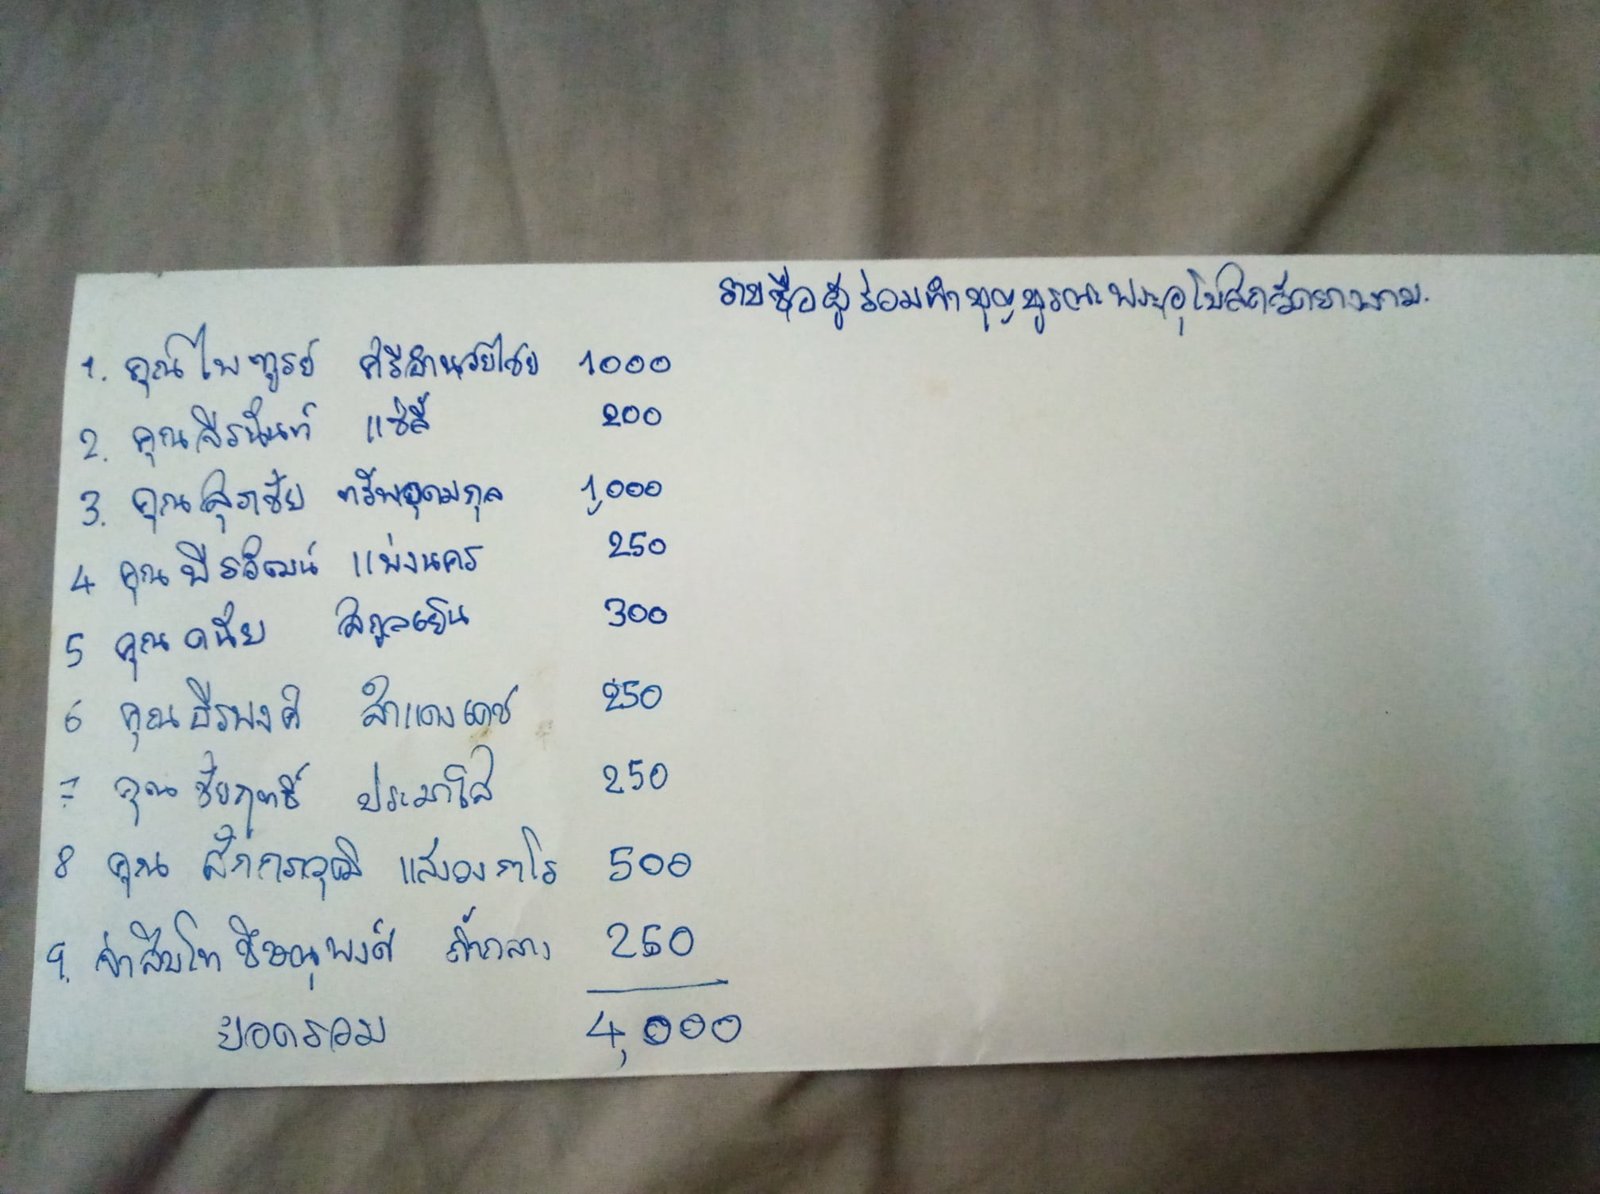 รายชื่อผู้ร่วมทำบุญบูรณะพระอุโบสถวัดยางงาม.
1. คุณไพฑูรย์ ศรีอำนวยไชย 1000
2. คุณจีรนันท์ แซ่ลี้ 200
3. คุณสุรชัย ทรัพอุดมกุล 1,000
4 คุณพีรวัฒน์ แพ่งนคร 250
5 คุณดนัย สกูลเยิน 300
6 คุณธีรพงศ์ สำแดงเดช 250
7 คุณชัยฤทธิ์ ประมาใส 250
8 คุณ แสงวงภาโร 500
9. จ่าสิบโท ชิษณุพงศ์ ถ้ำกลาง 250
ยอดรวม 4,000